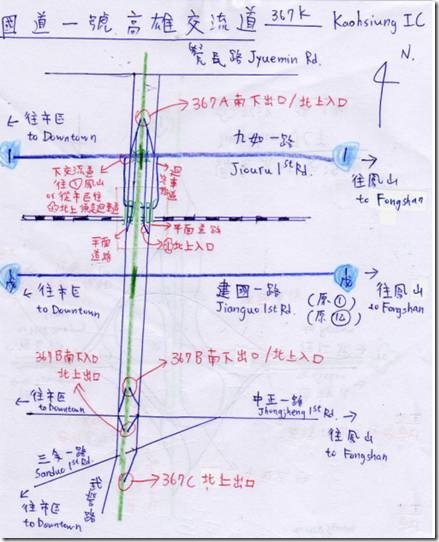 國道一號高雄交流道 367K Kaohsiung IC
覺民路 Jyuemin Rd.
N.
367A南下出口/北上入口
往市区
to Downtown
九如一路
Jiouru 1st Rd.
1
1
往鳳山
to Fongshan
下交流道
往①鳳山
or 從市区往
①北上須走迴車道
迴車道
平面
道路
平面道路
①北上入口
往市区
to Downtown
建國一路
Jianguo 1st Rd.
(原①)
(原①乙)
往鳳山
to Fongshan
367B南下入口
北上出口
367B南下出口/北上入口
往市区
to Downtown
中正一路
Jhongjheng 1st Rd.
往鳳山
to Fongshan
三多一路
Sanduo 1st Rd.
武營路
往市区
to Downtown
367C 北上出口